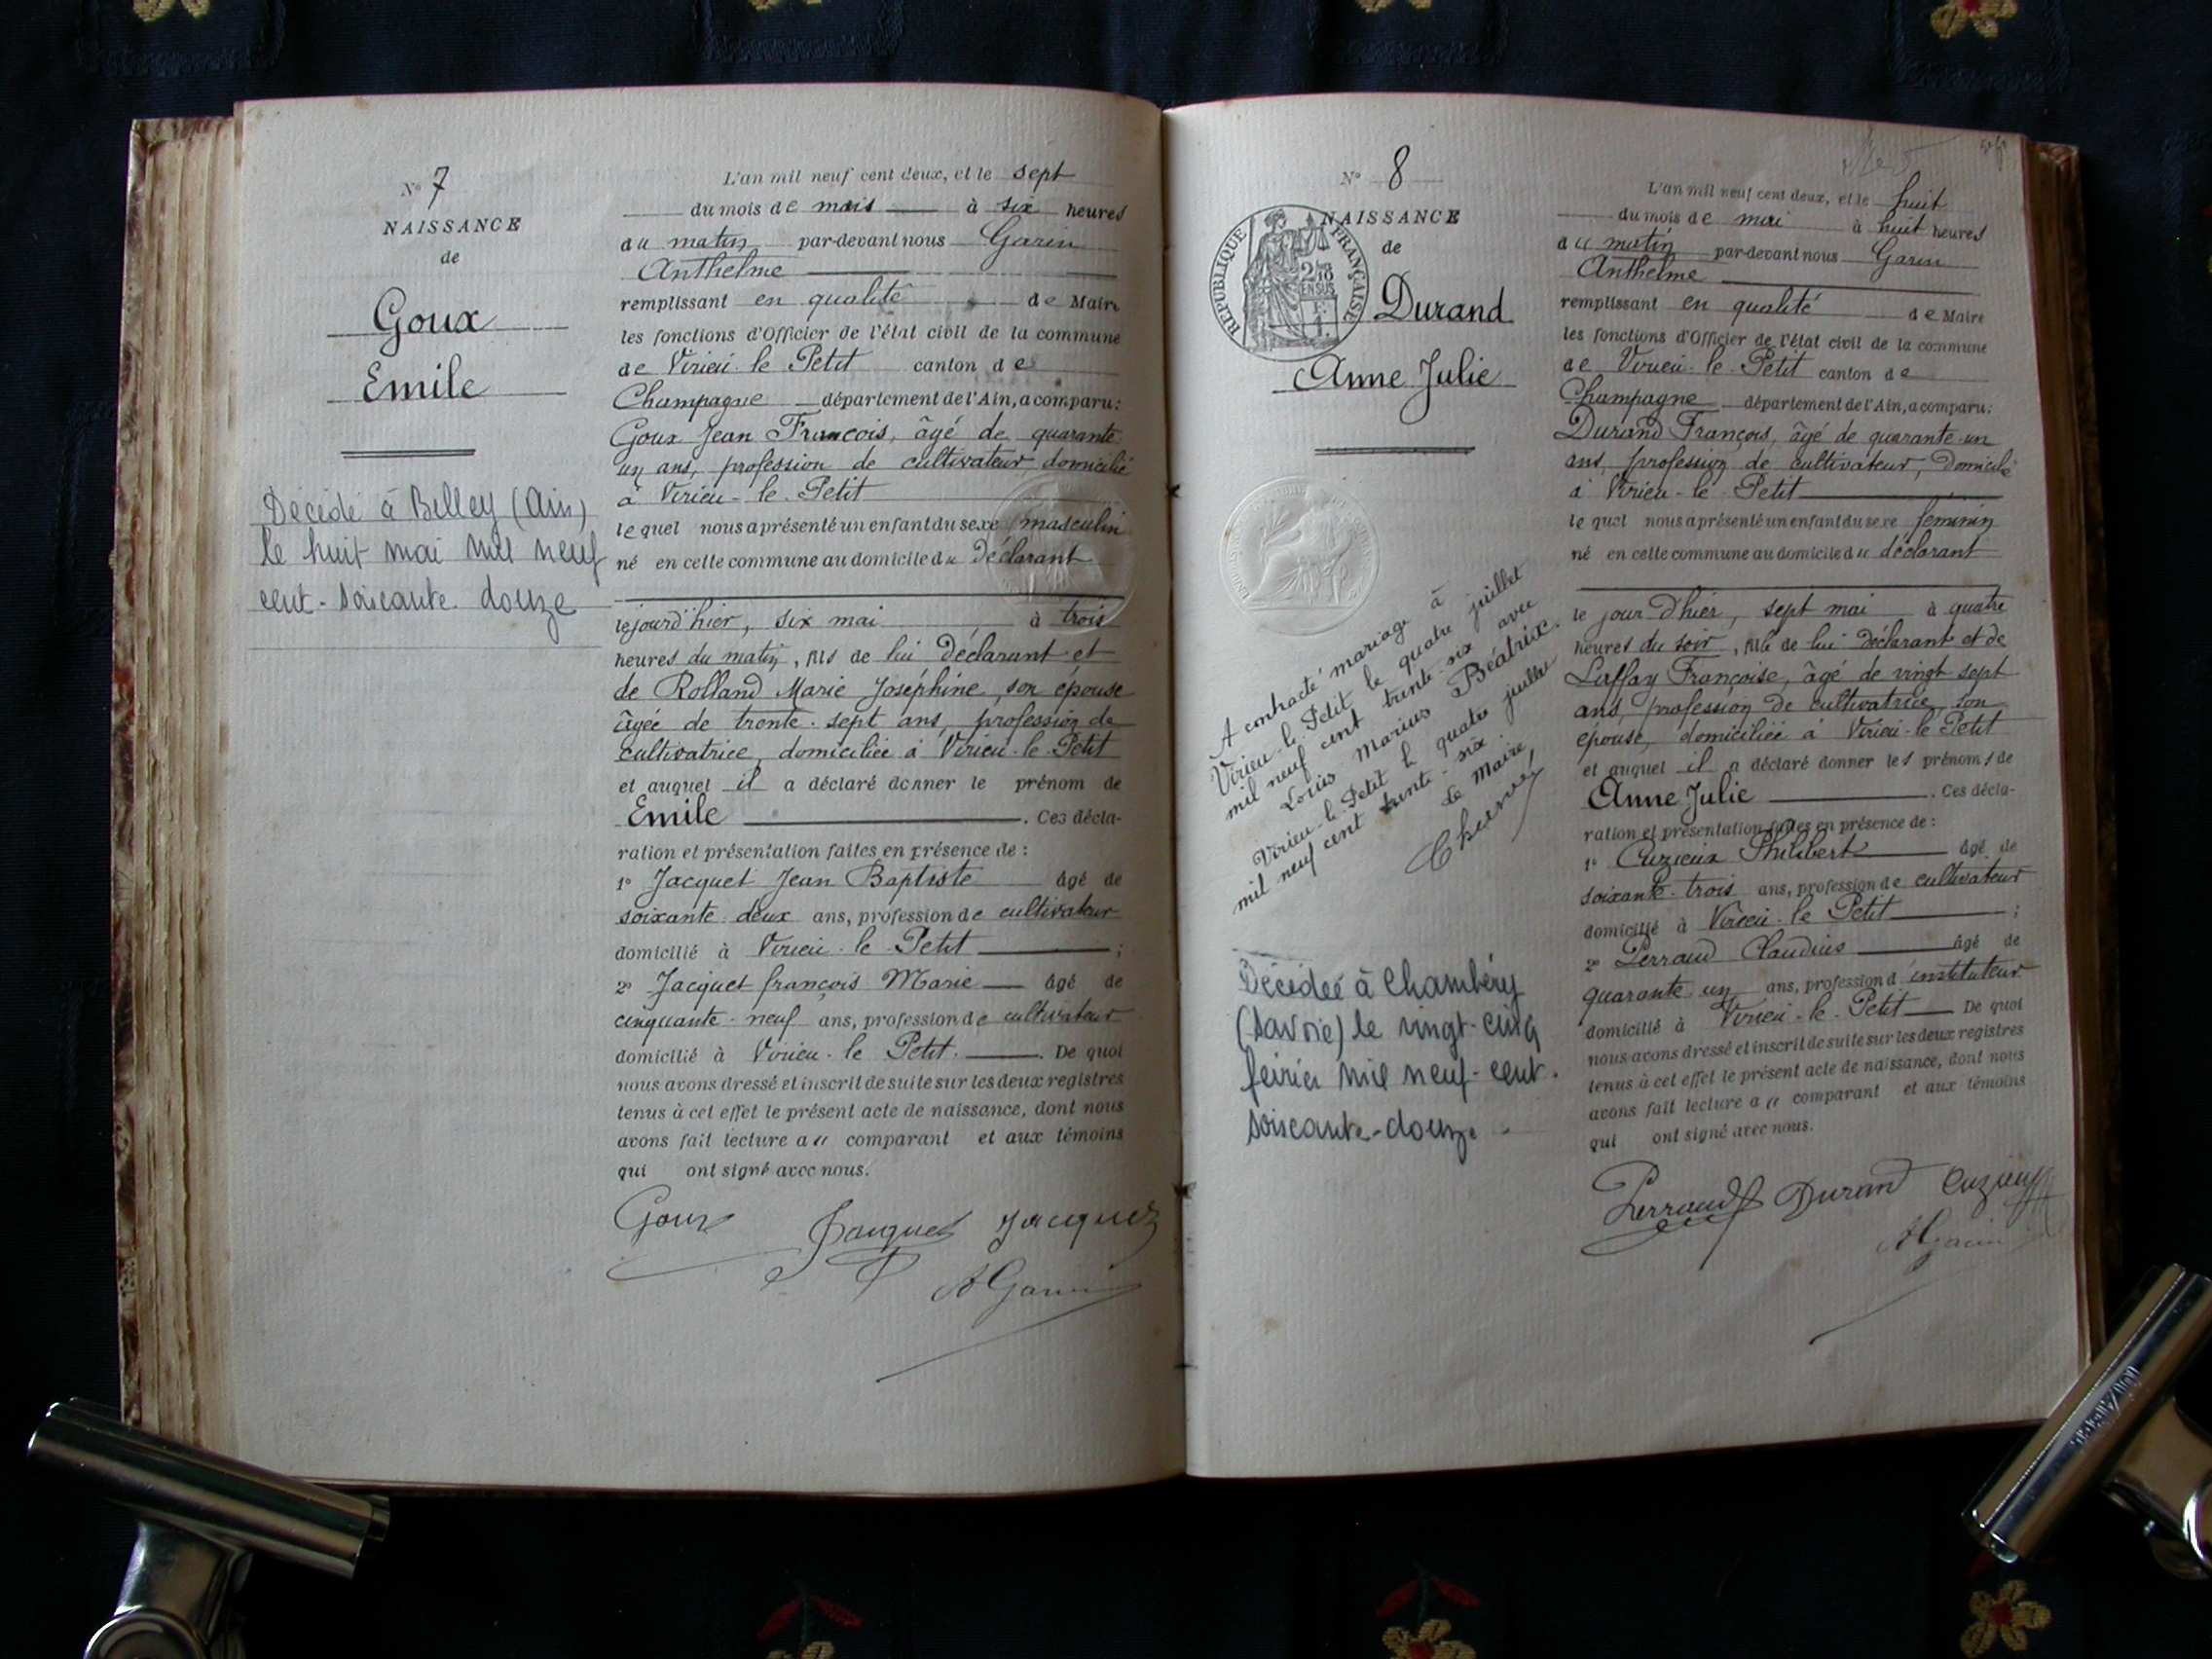 N° 7
NAISSANCE
de
Goux
Emile
Décédé à Belley (Ain)
le huit mai mil neuf
cent-soixante-douze
L'an mil neuf cent deux, et le sept
du mois de mai à six heures
du matin par-devant nous Garin
Anthelme
remplissant en qualité de Maire
les fonctions d'Officier de l'état civil de la commune
de Virieu-le-Petit canton de
Champagne département de l'Ain, a comparu:
Goux Jean François, âgé de quarante
un ans, profession de cultivateur domicilié
à Virieu-le-Petit
lequel nous a présenté un enfant du sexe masculin
né en cette commune au domicile du déclarant
le jour d'hier, six mai à trois
heures du matin, fils de lui déclarant et
de Rolland Marie Joséphine, son épouse
âgée de trente-sept ans, profession de
cultivatrice, domiciliée à Virieu-le-Petit
et auquel il a déclaré donner le prénom de
Emile. Ces décla-
ration et présentation faites en présence de :
1° Jacquet Jean Baptiste âgé de
soixante-deux ans, profession de cultivateur
domicilié à Virieu-le-Petit ;
2° Jacquet françois Marie âgé de
cinquante-neuf ans, profession de cultivateur
domicilié à Virieu-le-Petit. De quoi
nous avons dressé et inscrit de suite sur les deux registres
tenus à cet effet le présent acte de naissance, dont nous
avons fait lecture au comparant et aux témoins
qui ont signé avec nous.
Goux Jacquet Jacquet
A Garin
N° 8
NAISSANCE
de
REPUBLIQUE FRANÇAISE
2/10
EN SUS
Durand
Anne Julie
A contracté mariage à
Virieu-le-Petit le quatre juillet
mil neuf cent trente-six avec
Louis Marius Béatrix.
Virieu-le-Petit le quatre juillet
mil neuf cent trente-six.
Le Maire,
Décédée à Chambéry
(Savoie) le vingt-cinq
février mil neuf-cent-
soixante-douze.
L'an mil neuf cent deux, et le huit
du mois de mai à huit heures
du matin par-devant nous Garin
Anthelme
remplissant en qualité de Maire
les fonctions d'Officier de l'état civil de la commune
de Virieu-le-Petit canton de
Champagne département de l'Ain, a comparu:
Durand François, âgé de quarante-un
ans, profession de cultivateur, domicilié
à Virieu-le-Petit
lequel nous a présenté un enfant du sexe féminin
né en cette commune au domicile du déclarant
le jour d'hier, sept mai à quatre
heures du soir, fille de lui déclarant et de
Laffay Françoise, âgé de vingt sept
ans, profession de cultivatrice, son
épouse, domiciliée à Virieu-le-Petit
et auquel il a déclaré donner les prénoms de
Anne Julie. Ces décla-
ration et présentation faites en présence de :
1° Cuzieux Philibert âgé de
soixante-trois ans, profession de cultivateur
domicilié à Virieu-le-Petit ;
2° Perraud Claudius âgé de
quarante un ans, profession d'instituteur
domicilié à Virieu-le-Petit De quoi
nous avons dressé et inscrit de suite sur les deux registres
tenus à cet effet le présent acte de naissance, dont nous
avons fait lecture au comparant et aux témoins
qui ont signé avec nous.
Perraud Durand Cuzieux
A Garin